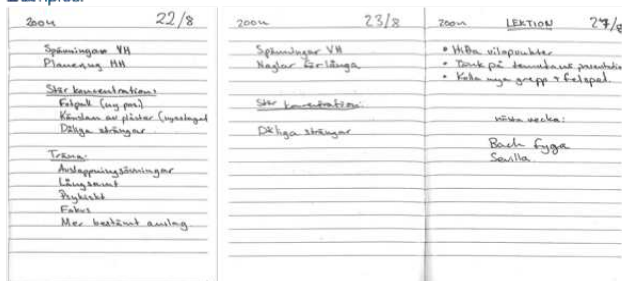 2004 22/8
Spänningar VH
Planering HH
Stör koncentration:
Fotpall (ny pos)
Känslan av plåster (nyss tagit
Dåliga strängar
Träna:
Avslappningsövningar
Långsamt
Psykiskt
Fokus
Mer bestämt anslag
2004 23/8
Spänningar VH
Naglar för långa
Stör koncentration:
Dåliga strängar
2004 LEKTION 27/8
• Hitta vilopunkter
• Tänk på temats presentation
• Kolla nya grepp + felspel.
nästa vecka:
Bach fuga
Sevilla